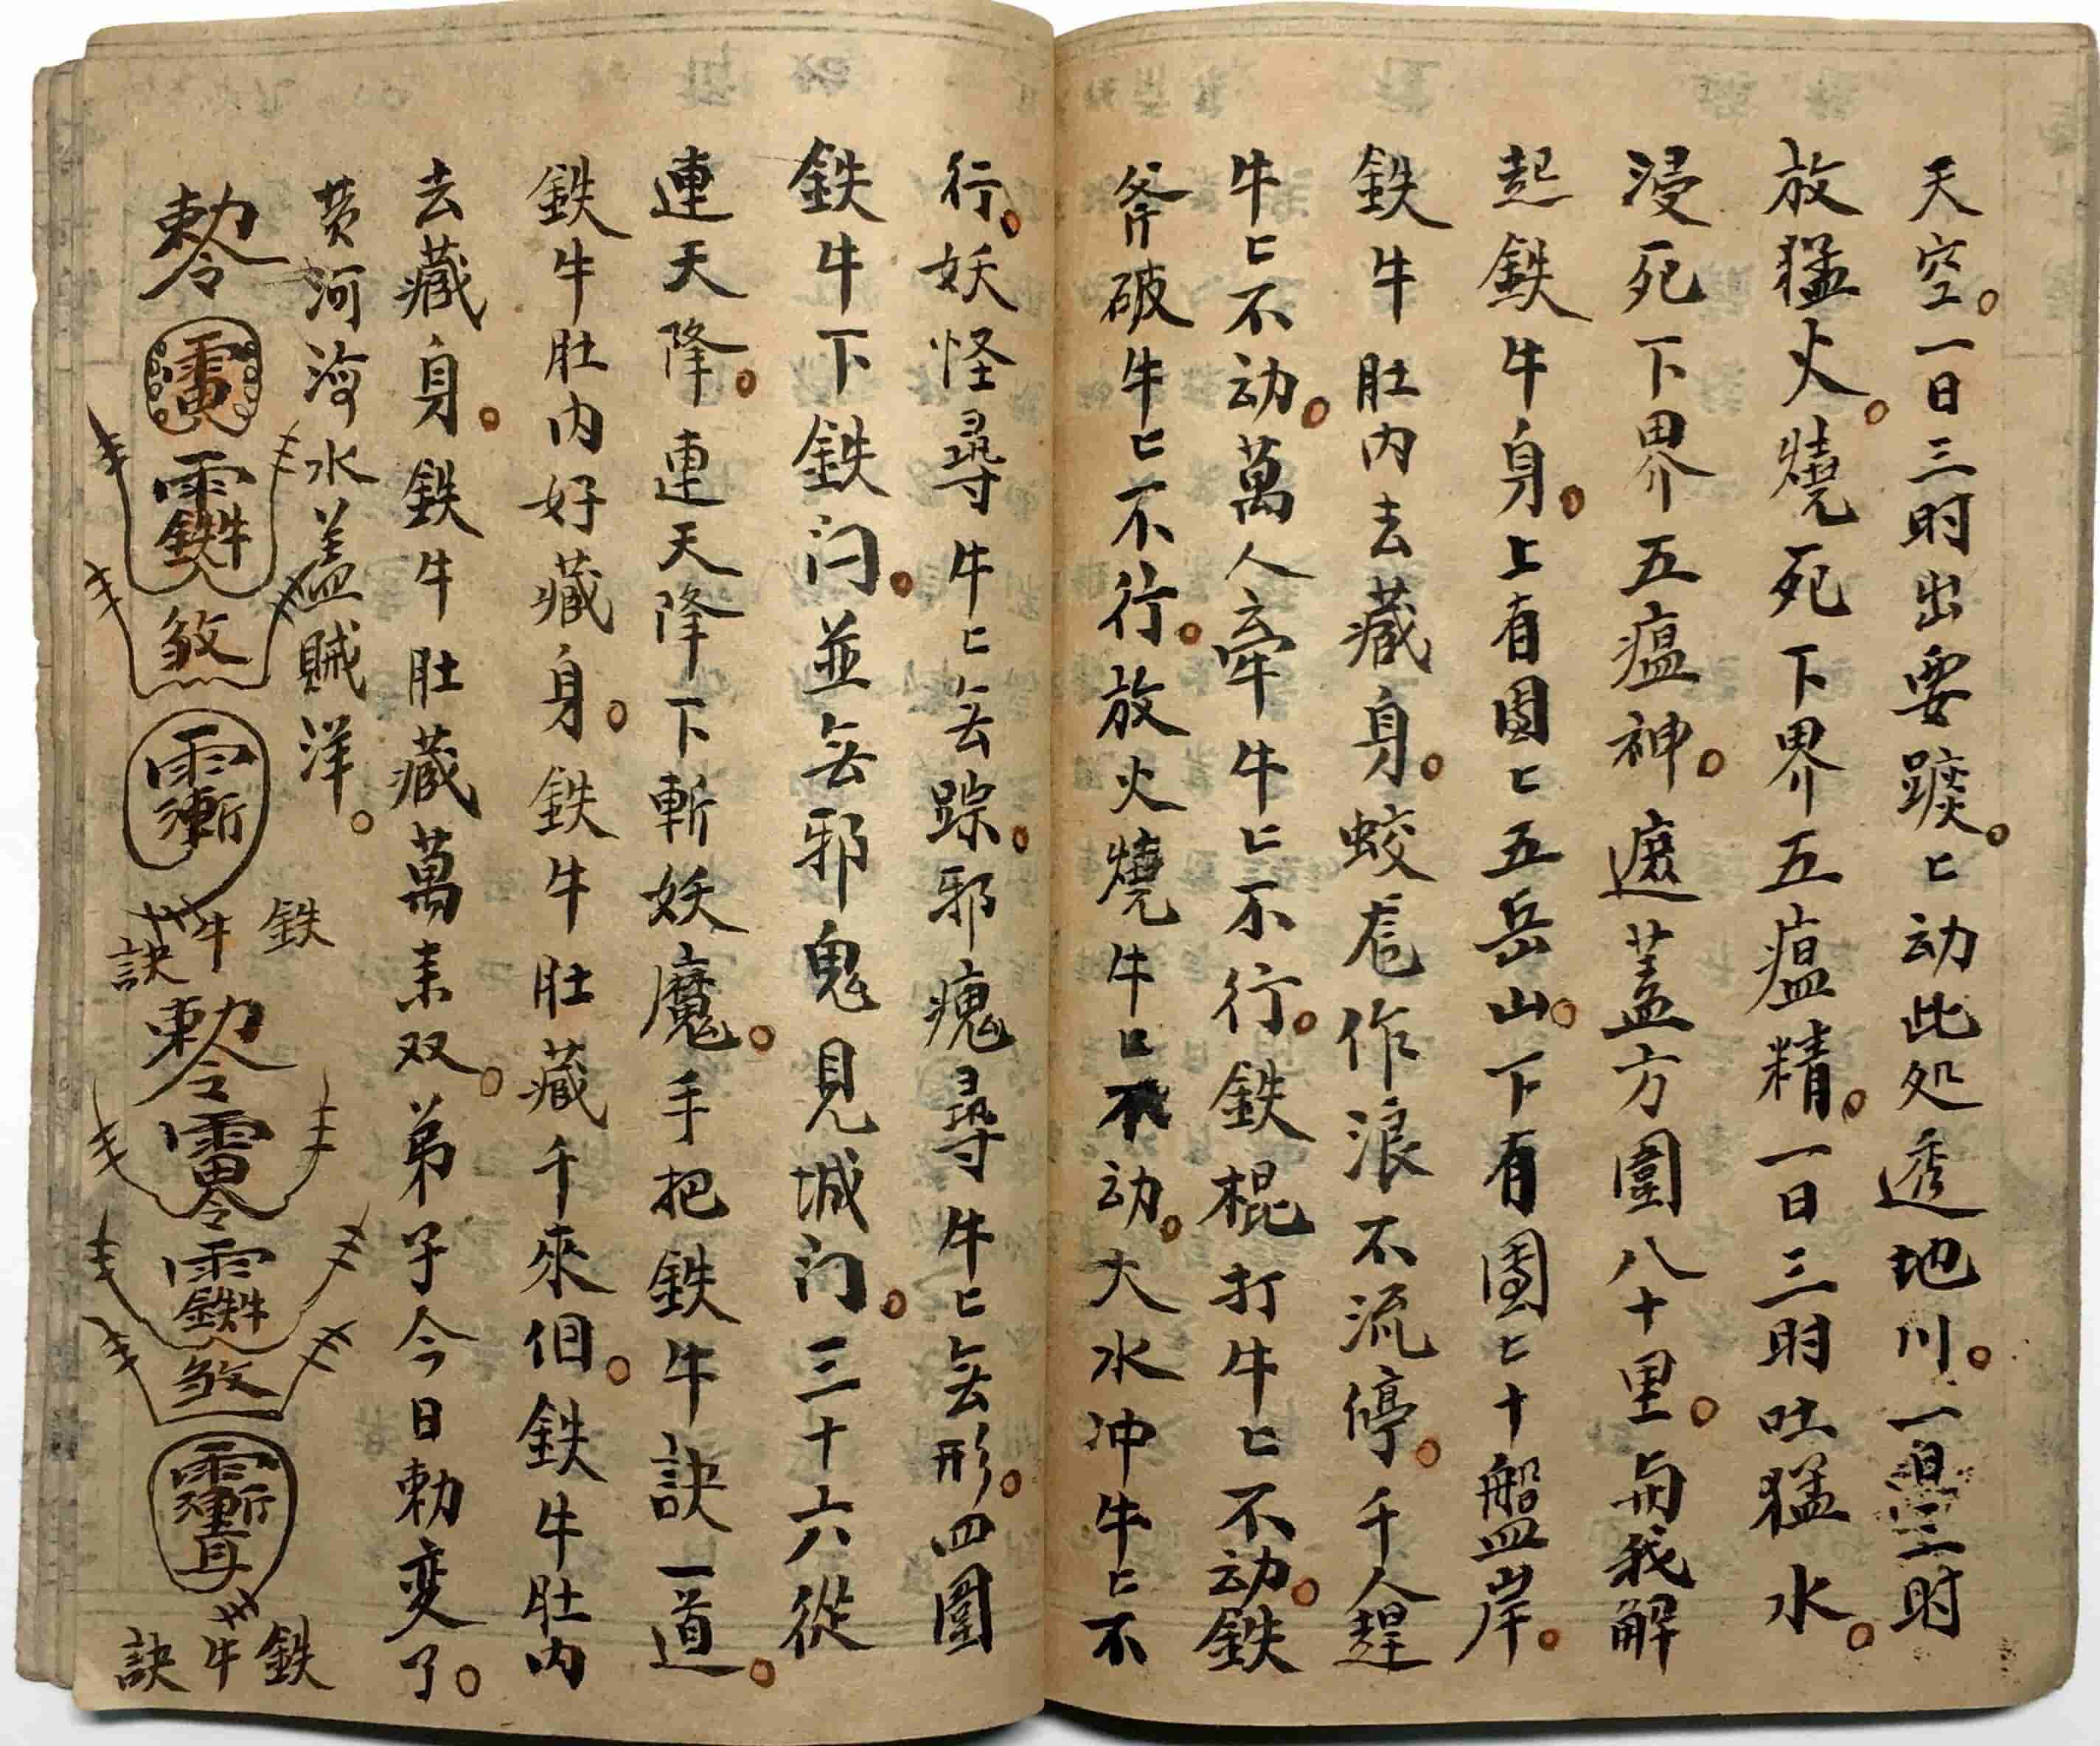 天空。一日三时出要蹽。匕动此处透地川。一日三时
放猛火。燒死下界五瘟精。一日三时吐猛水。
浸死下界五瘟神。遮蓋方圍八十里。与我解
起鉄牛身。上有团匕五岳山。下有团匕十盤岸。
鉄牛肚内去藏身。蛟作浪不流停。千人趕
牛匕不动。萬人牽牛匕不行。鉄棍打牛匕不动。鉄
斧破牛匕不行。放火燒牛匕不动。大水冲牛匕不
行。妖怪尋牛匕無踪。邪瘣尋牛匕無形。四圍
鉄牛下鉄门。並無邪鬼見城门。三十六從
連天降。連天降下斬妖魔。手把鉄牛訣一道。
鉄牛肚内好藏身。鉄牛肚藏千來佪。鉄牛肚内
去藏身。鉄牛肚藏萬耒双。弟子今日勅变了。
黄河海水盖賊洋。
勅令
煞
鉄牛訣
勅令
煞
鉄牛訣